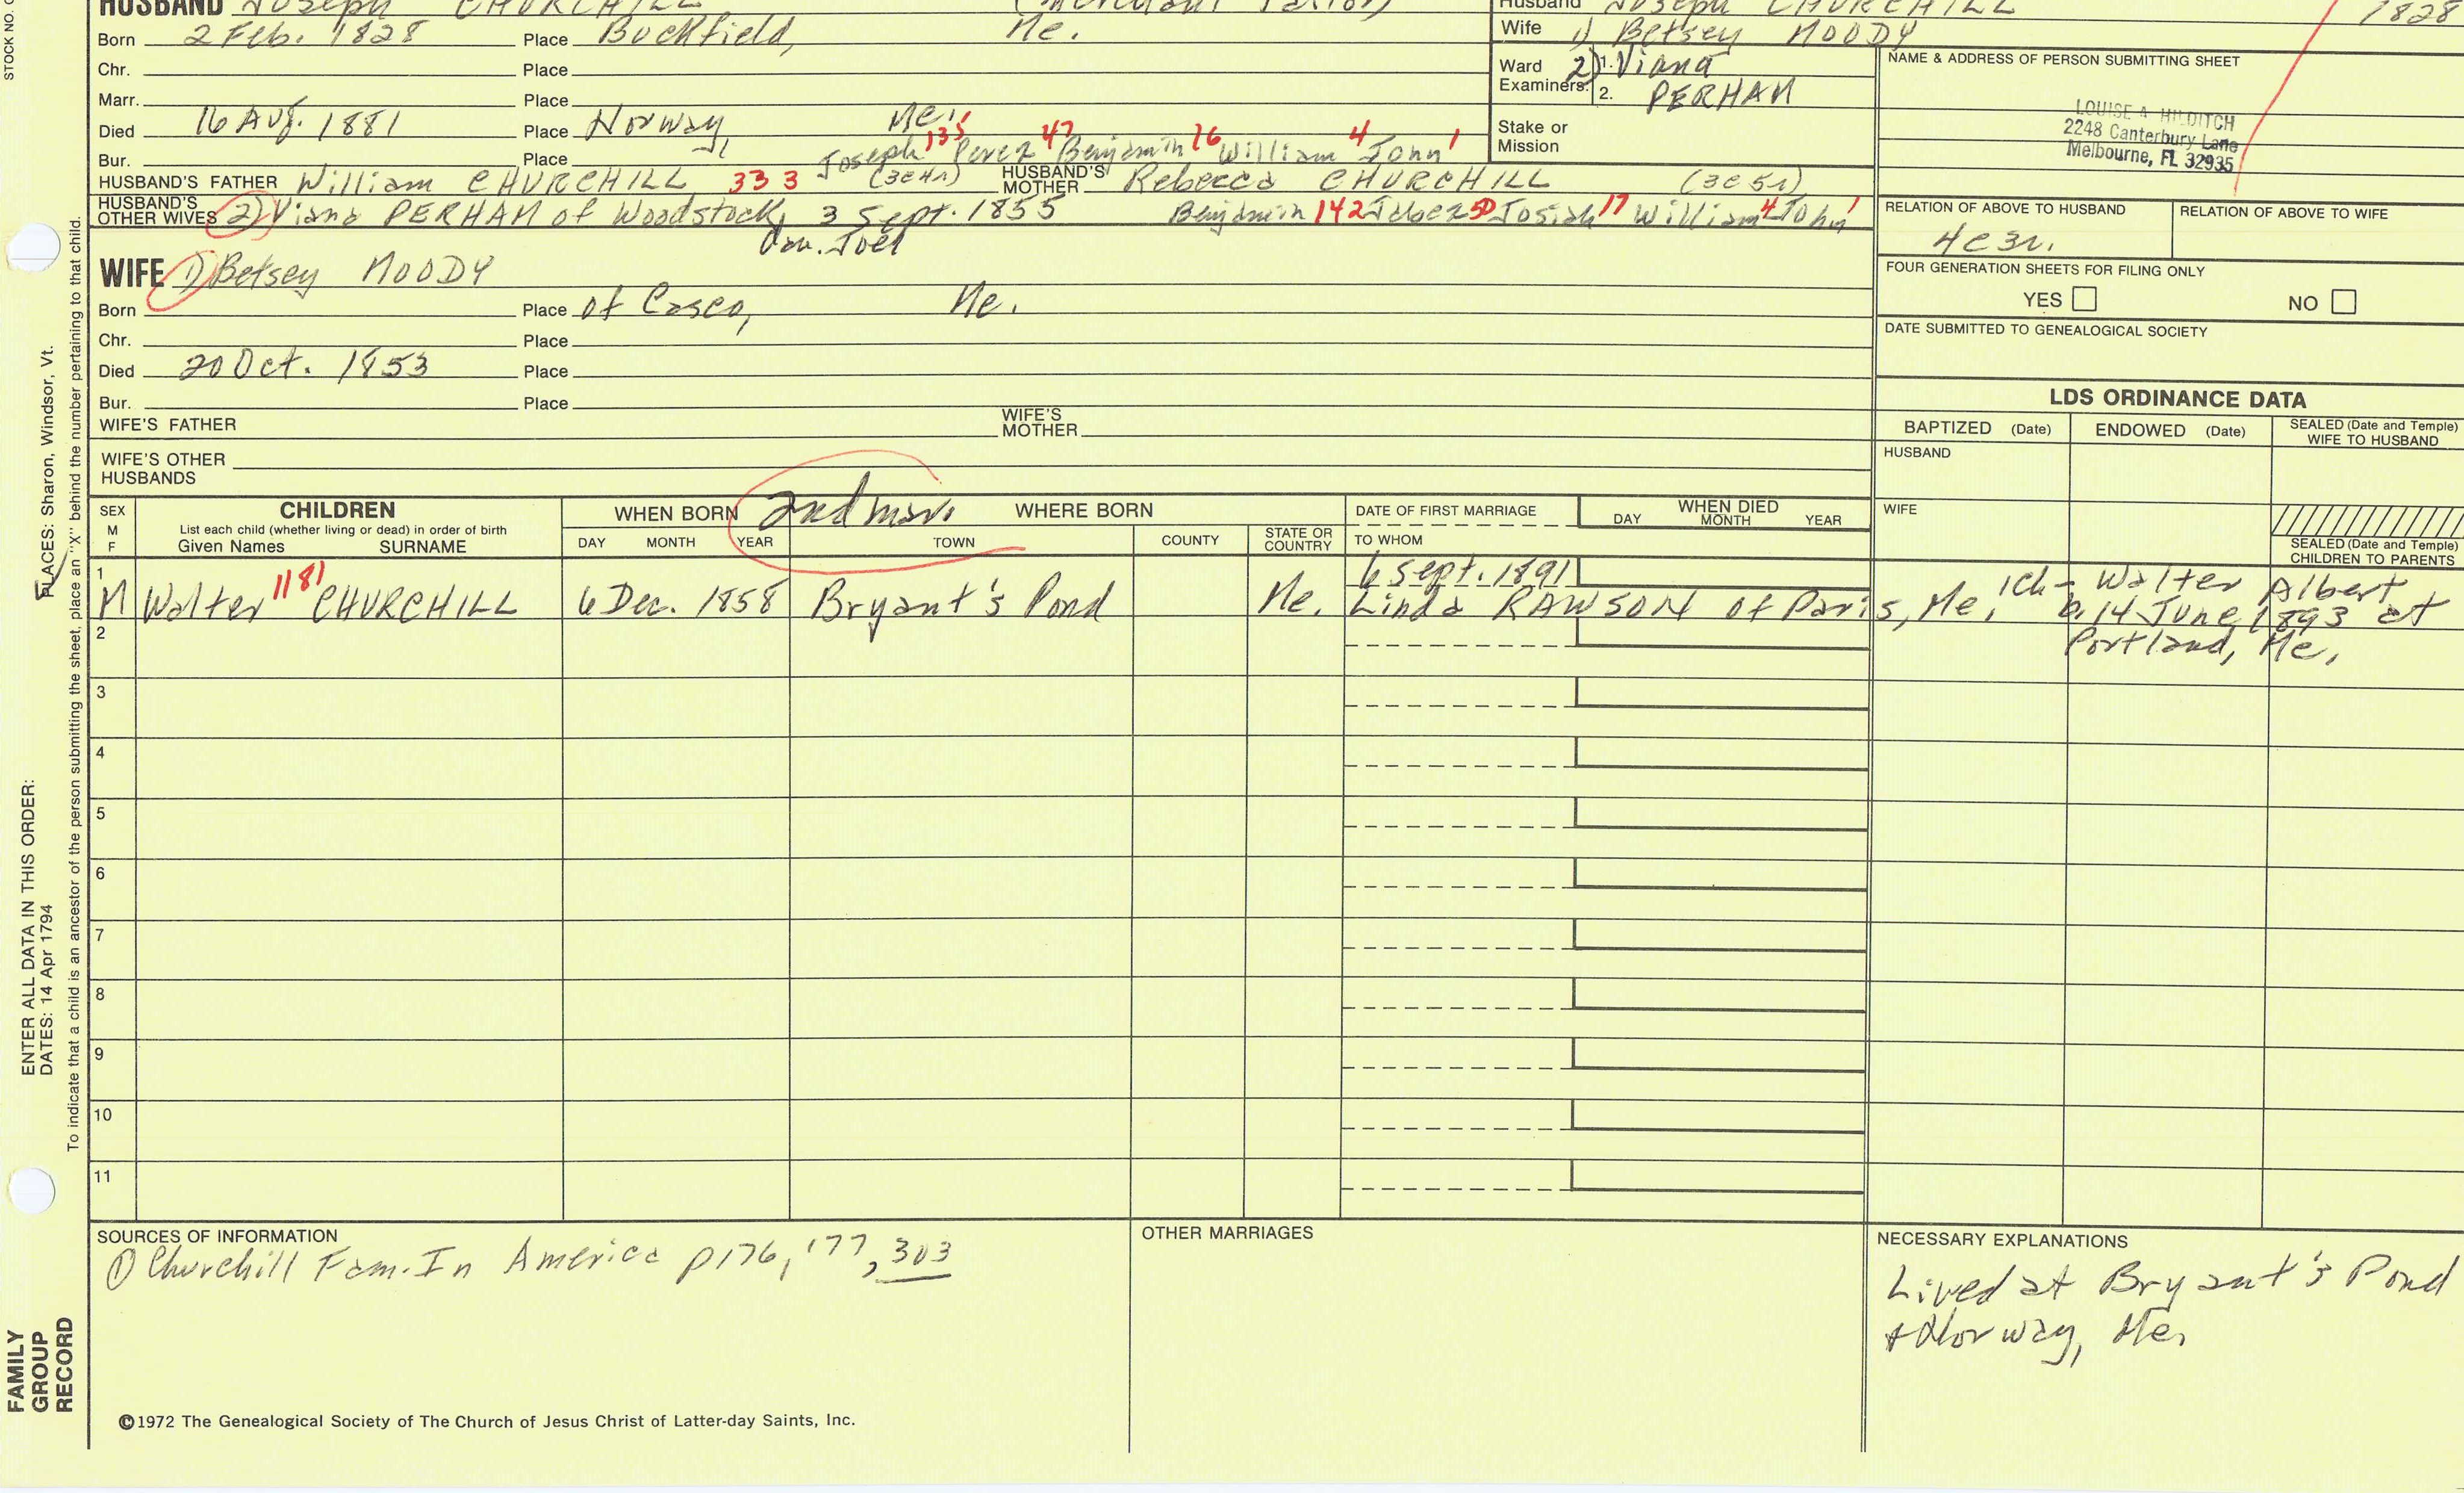 HUSBAND Joseph CHURCHILL (Merchant Tailor)
Husband Joseph CHURCHILL 1828
Wife 1) Betsey MOODY
Born 2 Feb. 1828 Place Buckfield, Me.
Chr. Place
Ward Examiners: 1. 2) Viana
2. PERHAM
NAME & ADDRESS OF PERSON SUBMITTING SHEET
Marr. Place
LOUISE A HILDITCH
2248 Canterbury Lane
Melbourne, FL 32935
Died 16 Aug. 1881 Place Norway, Me.
Stake or Mission
Bur. Place
Joseph 135 Perez 47 Benjamin 16 William 4 John 1
HUSBAND'S FATHER William CHURCHILL 333 (3C4r) HUSBAND'S MOTHER Rebecca CHURCHILL (3C5r)
HUSBAND'S OTHER WIVES 2) Viana PERHAM of Woodstock, 3 Sept. 1855 Benjamin 142 Jabez 50 Josiah 17 William 4 John 1
Dau. Joel
RELATION OF ABOVE TO HUSBAND RELATION OF ABOVE TO WIFE
4C3r.
WIFE 1) Betsey MOODY
FOUR GENERATION SHEETS FOR FILING ONLY
YES NO
Born Place of Casco, Me.
Chr. Place
DATE SUBMITTED TO GENEALOGICAL SOCIETY
Died 20 Oct. 1853 Place
Bur. Place
WIFE'S FATHER WIFE'S MOTHER
WIFE'S OTHER HUSBANDS
LDS ORDINANCE DATA
BAPTIZED (Date) ENDOWED (Date) SEALED (Date and Temple) WIFE TO HUSBAND
HUSBAND
WIFE
SEALED (Date and Temple) CHILDREN TO PARENTS
SEX M F
CHILDREN
List each child (whether living or dead) in order of birth
Given Names SURNAME
WHEN BORN
DAY MONTH YEAR
2nd marr.
WHERE BORN
TOWN COUNTY STATE OR COUNTRY
DATE OF FIRST MARRIAGE
TO WHOM
WHEN DIED
DAY MONTH YEAR
6 Sept. 1891
1 M Walter 1181 CHURCHILL 6 Dec. 1858 Bryant's Pond Me. Linda RAWSON of Paris, Me. 1ch- Walter Albert
b. 14 June 1893 at
Portland, Me.
2
3
4
5
6
7
8
9
10
11
SOURCES OF INFORMATION
① Churchill Fam. In America p176, 177, 303
OTHER MARRIAGES
NECESSARY EXPLANATIONS
Lived at Bryant's Pond
+ Norway, Me.
©1972 The Genealogical Society of The Church of Jesus Christ of Latter-day Saints, Inc.
STOCK NO.
ENTER ALL DATA IN THIS ORDER:
DATES: 14 Apr 1794
PLACES: Sharon, Windsor, Vt.
To indicate that a child is an ancestor of the person submitting the sheet, place an "X" behind the number pertaining to that child.
FAMILY
GROUP
RECORD